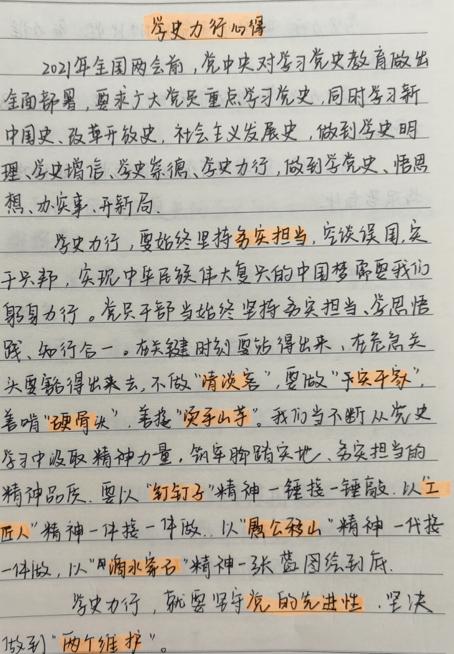 学史力行心得
2021年全国两会前，党中央对学习党史教育做出
全面部署，要求广大党员重点学习党史，同时学习新
中国史、改革开放史，社会主义发展史，做到学史明
理、学史增信、学史崇德、学史力行，做到学党史、悟思
想、办实事、开新局.
学史力行，要始终坚持务实担当，空谈误国,实
干兴邦，实现中华民族伟大复兴的中国梦需要我们
躬身力行。党员干部当始终坚持务实担当、学思悟
践、知行合一。在关键时刻要站得出来、在危急关
头要豁得出来去，不做“清谈客”，要做“干实干家”，
善啃“硬骨头”，善接“烫手山芋”。我们当不断从党史
学习中汲取精神力量，筑牢脚踏实地、务实担当的
精神品质.要以“钉钉子”精神一锤接一锤敲.以“工
匠人”精神一件接一件做.以“愚公移山”精神一代接
一代做，以“滴水穿石”精神一张蓝图绘到底.
学史力行，就要坚守党的先进性.坚决
做到“两个维护”。